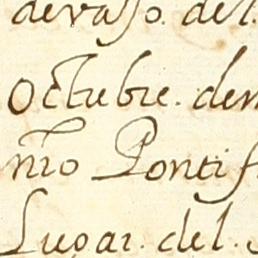 devaso. del.
Octubre. de
nrō Pontif
Lugar. del.